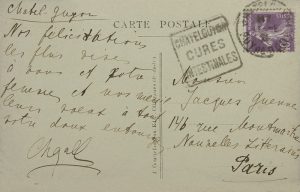 Chatel Guyon
CARTE POSTALE
Nos félicitations
les plus vives
à vous et votre
femme et nos
leurs vœux à tout
votre doux entourage
Chgall
CHATELGUYON
CURES
INTESTINALES
Monsieur
Jacques Guenne
146 rue Montmartre
Nouvelles Littéraires
Paris